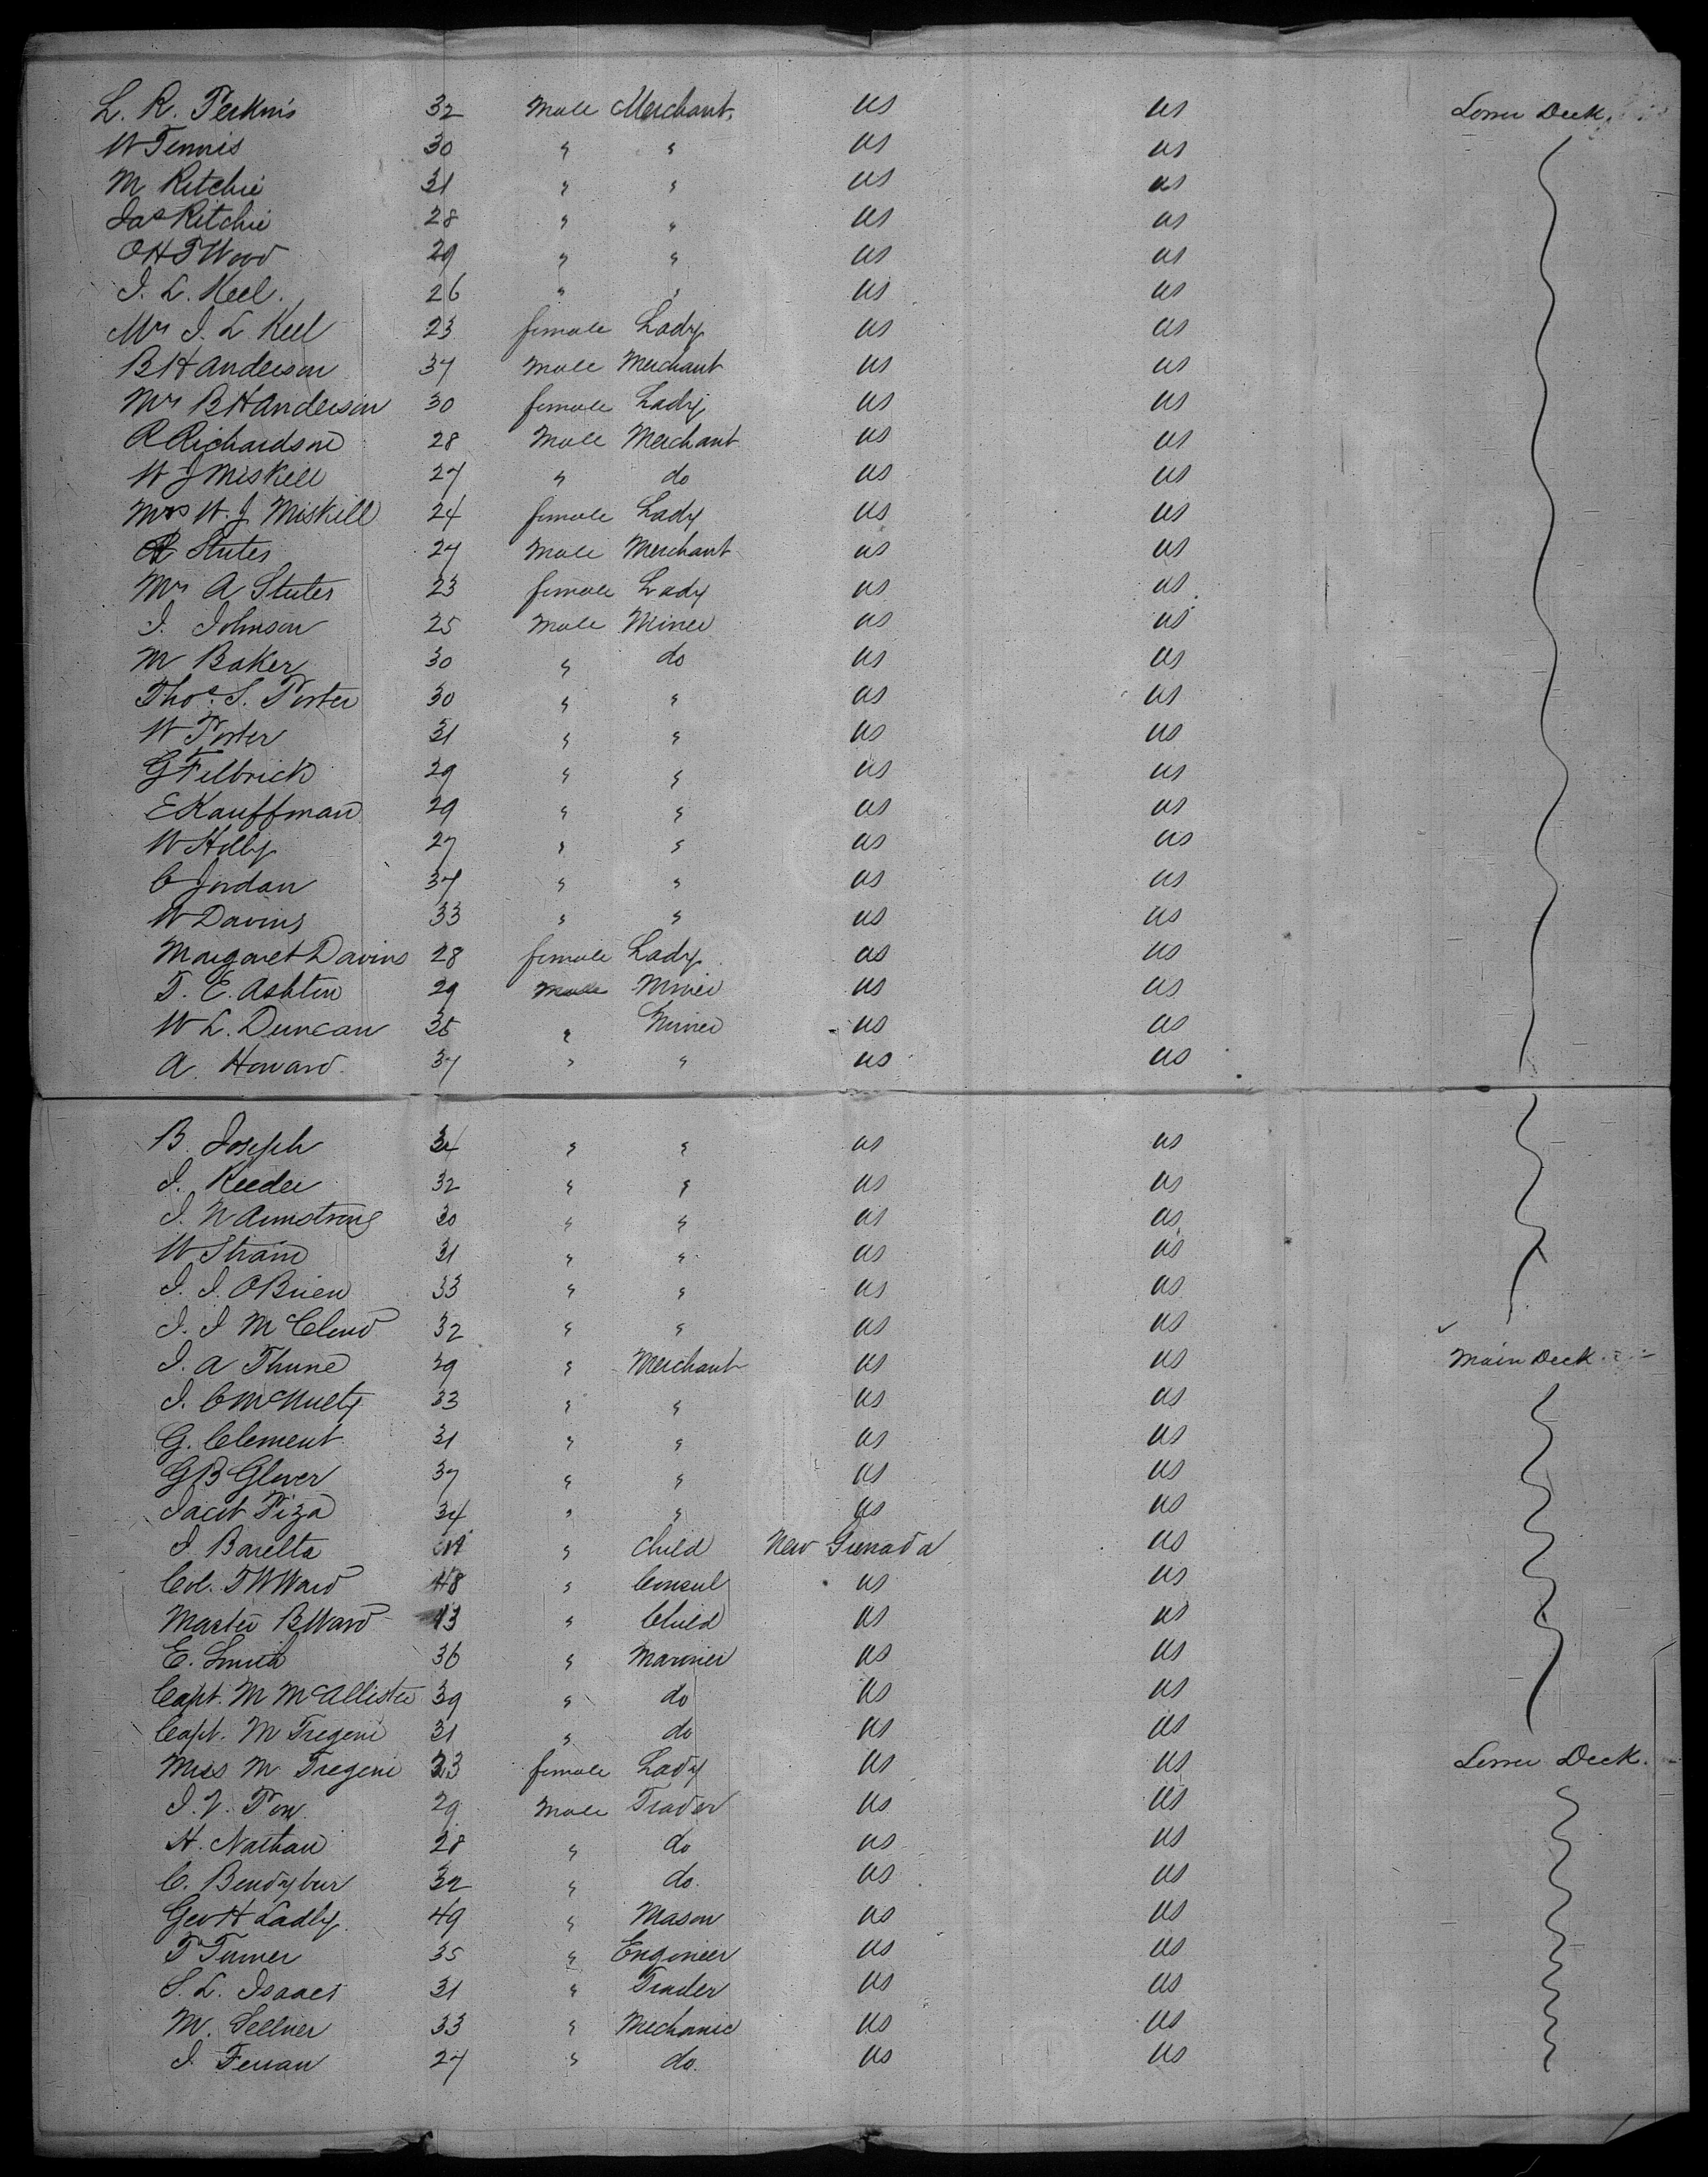 L. R. Perkins 32 Male Merchant US US Lower Deck
W Tennis 30 " " US US
M Ritchie 31 " " US US
Jas Ritchie 28 " " US US
O H T Wood 29 " " US US
J. L. Keel. 26 " " US US
Mrs J. L Keel 23 female Lady US US
B H Anderson 37 Male Merchant US US
Mrs B H Anderson 30 female Lady US US
R Richardson 28 Male Merchant US US
W J Miskill 27 " do US US
Mrs W. J Miskill 24 female Lady US US
A Stutes 27 Male Merchant US US
Mrs A Stutes 23 female Lady US US
J. Johnson 25 Male Miner US US
M Baker 30 " do US US
Thos. S. Porter 30 " " US US
W Porter 31 " " US US
G Filbrick 29 " " US US
E Kauffman 29 " " US US
W Hilby 27 " " US US
C Jordan 37 " " US US
W Davins 33 " " US US
Margaret Davins 28 female Lady US US
T. E. Ashton 29 Male Miner US US
W L. Duncan 35 " Miner US US
A. Howard 37 " " US US
B. Joseph 34 " " US US
J. Reeder 32 " " US US
J. N Armstrong 30 " " US US
W Strain 31 " " US US
J. J. OBrien 33 " " US US
J. J McCloud 32 " " US US
J. A Thune 29 " Merchant US US Main Deck
J. C McNulty 33 " " US US
G. Clement 31 " " US US
G B Glover 37 " " US US
Jacob Piza 34 " " US US
J. Barelta " Child New Grenada US
Col. T W Ward 48 " Consul US US
Master B Ward 13 " Child US US
E. Smith 36 " Mariner US US
Capt. M McAllister 39 " do US US
Capt. M Tregene 31 " do US US
Miss M Tregene 23 female Lady US US Lower Deck.
J. V. Pow 29 Male Trader US US
H. Nathan 28 " do US US
C. Bendybur 32 " do. US US
Geo H Ladly. 49 " Mason US US
T Turner 35 " Engineer US US
S. L. Isaacs 31 " Trader US US
M. Sellner 33 " Mechanic US US
J. Ferran 27 " do. US US